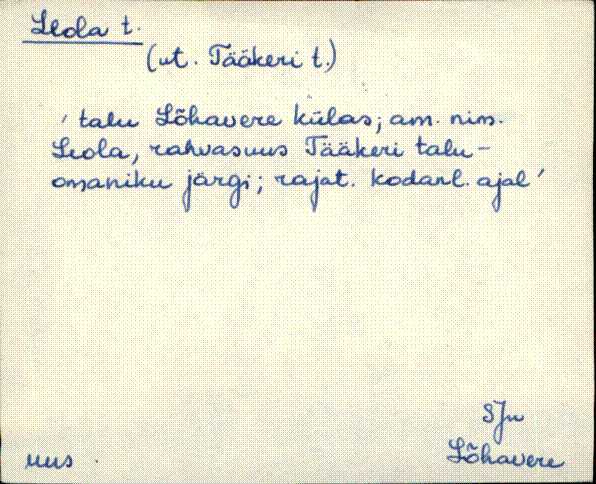 Leola t.
(ut. Tääkeri t.)
' talu Lõhavere külas; am. nim.
Leola, rahvasuus Tääkeri talu-
omaniku järgi; rajat. kodanl. ajal '
SJn
Lõhavere
uus